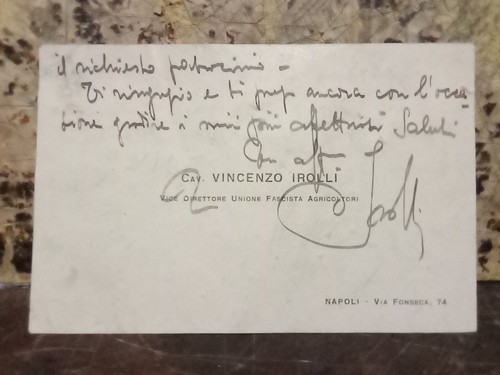 il richiesto patrocinio =
Ti ringrazio e ti prego ancora con l'occa
sione gradire i miei più affettuosi Saluti
Cav. VINCENZO IROLLI
VICE DIRETTORE UNIONE FASCISTA AGRICOLTORI
Irolli
NAPOLI - VIA FONSECA, 74